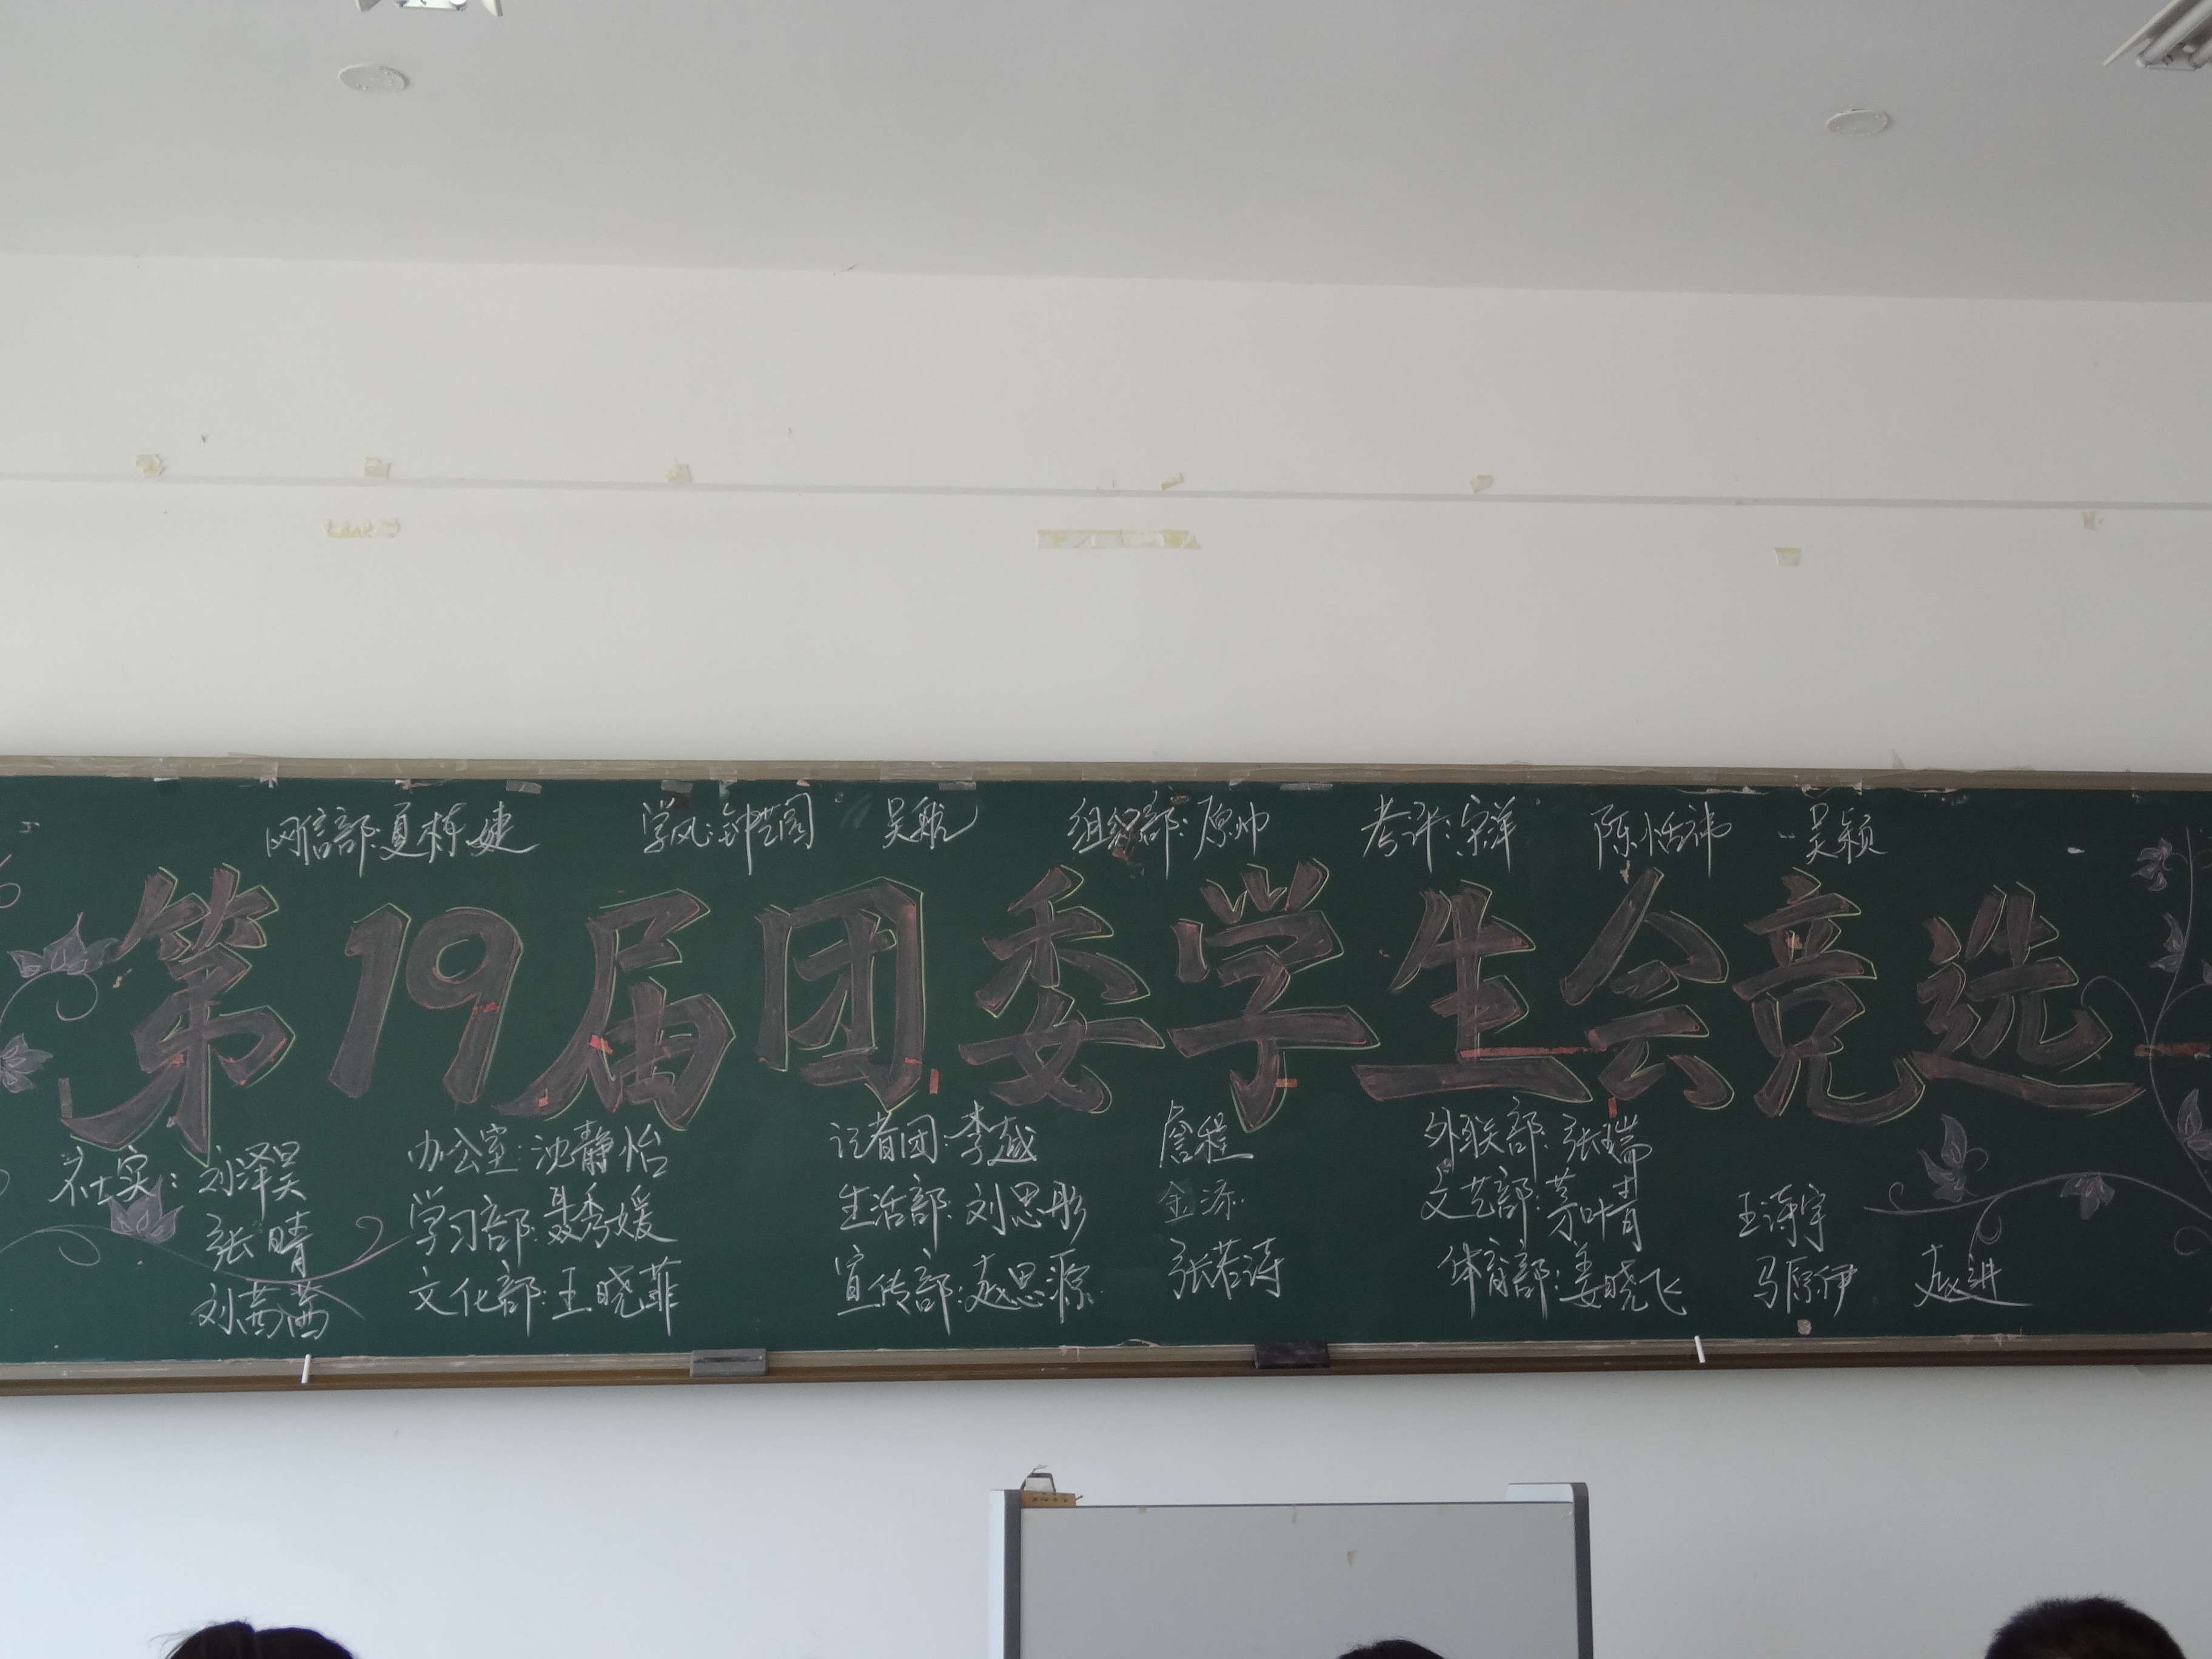 网信部:夏栋婕 学风:钟艺图 吴航 组织部:原帅 考评:宋洋 陈恬祎 吴颖
第19届团委学生会竞选
社实:刘泽昊 办公室:沈静怡 记者团:李越 詹程 外联部:张瑞
张晴 学习部:聂秀媛 生活部:刘思彤 金添 文艺部:茅叶青 王涛宇
刘茜茜 文化部:王晓菲 宣传部:赵思源 张若涛 体育部:姜晓飞 马原伊 赵进